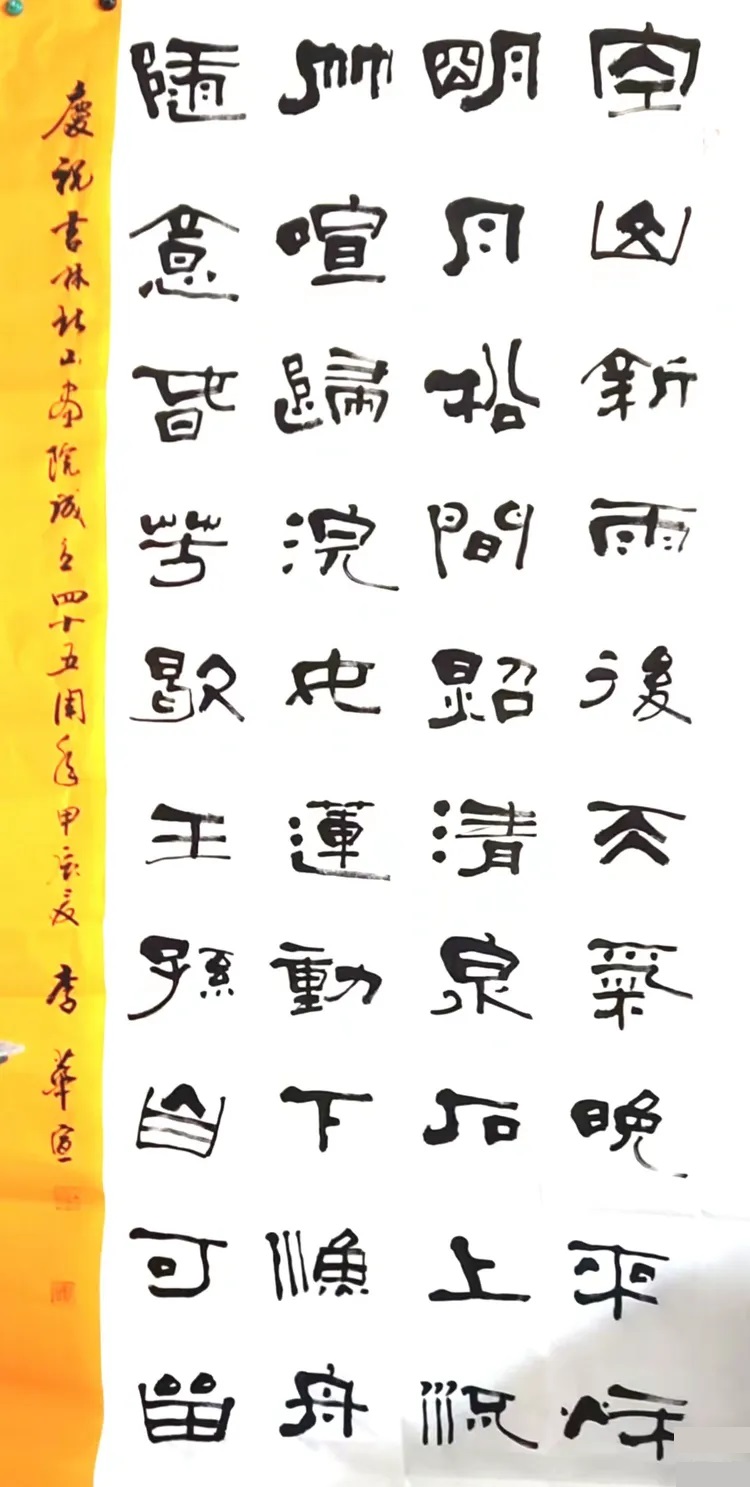 空山新雨後天氣晚來秋
明月松間照清泉石上流
竹喧歸浣女蓮動下漁舟
隨意春芳歇王孫自可留
慶祝吉林山画院成立四十五周年甲辰夏 李華宣